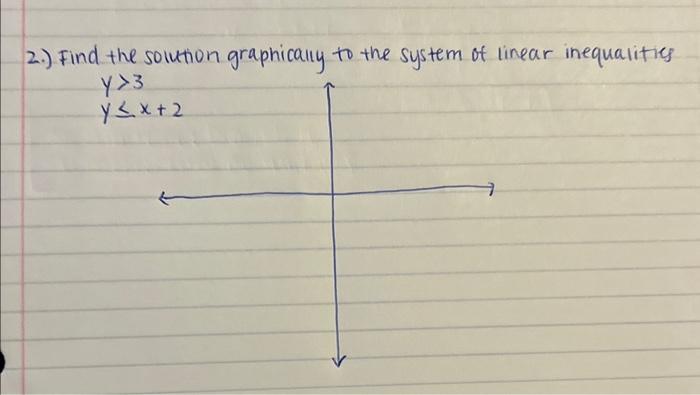 2.) Find the solution graphically to the system of linear inequalities
y>3
y≤x+2